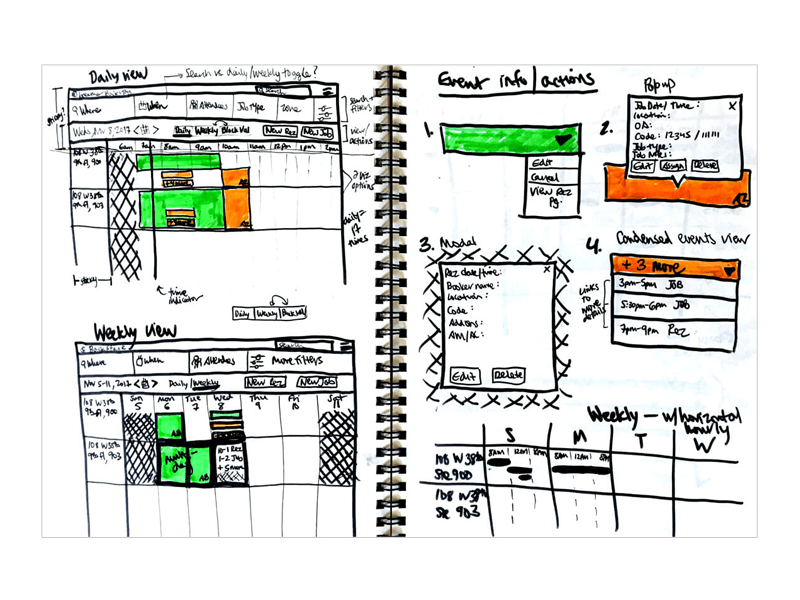 Daily view
Search vs daily/weekly toggle?
Search
Where
When
Attendees
Job Type
Zone
Search +
filters
Wed, Nov 8, 2017 < >
Daily Weekly Block Cal
New Rez
New Job
view/
actions
6am 7am 8am 9am 10am 11am 12pm 1pm 2pm
108 W 38th
9th Fl, 900
108 W 38th
9th Fl, 903
A2
options
daily =
sticky
time
indicator
Daily Weekly
Weekly View
Search
Where
When
Attendees
More Filters
Nov 5-11, 2017 < >
Daily / Weekly
New Rez
New Job
108 W 38th
9th Fl, 900
108 W 38th
9th Fl, 903
Sun
5
Mon
6
Tue
7
Wed
8
Thu
9
Fri
10
Sat
11
AB
Multi-
day
AB
10-1 Rez
1-2 Job
+ 5 more
Event info/actions
1.
Edit
Cancel
View Rez
Pg.
Popup
2.
Job Date/Time:
X
Location:
OA:
Code: 12345 / 11111
Job type:
Job Notes:
Edit
Assign
Delete
AZ
3. Modal
Rez date/time:
X
Booker name:
Location:
Code:
Addons:
AM/AE:
Edit
Delete
4. Condensed events view
+ 3 more
3pm-5pm JOB
5:30pm-6pm JOB
7pm-9pm Rez
Links
to
more
details
Weekly — w/horizontal
hourly
S
M
T
W
8am 12pm
8am 12pm 6pm
108 W 38th
Ste 900
108 W 38th
Ste 903